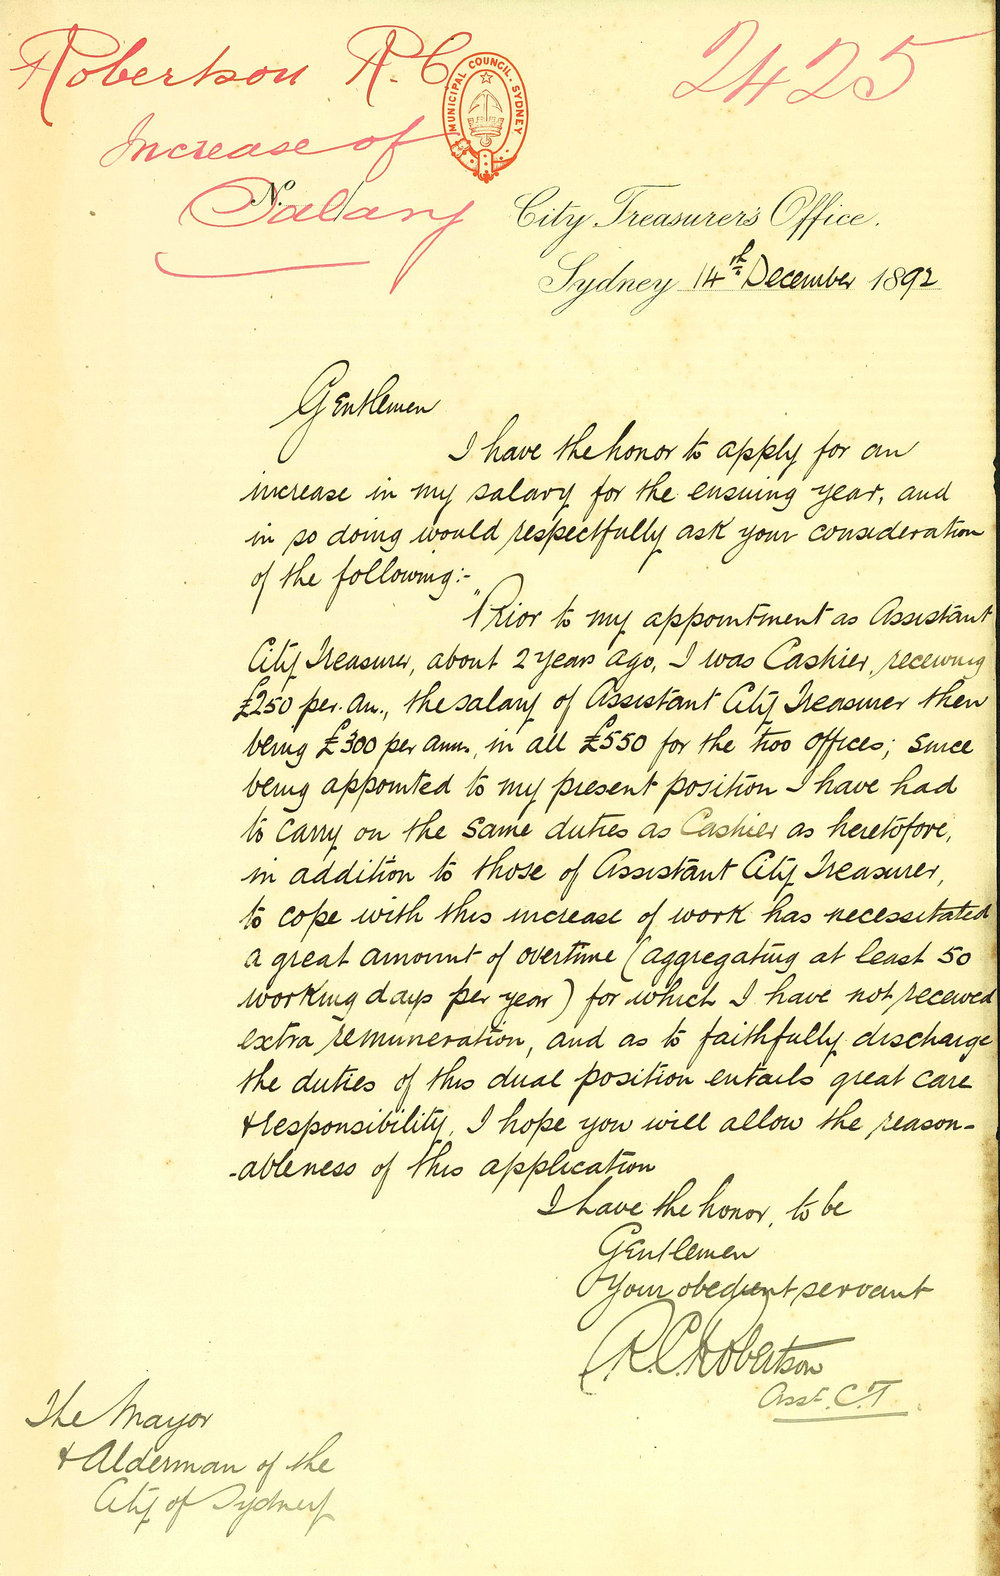 Robertson R. C
2425
MUNICIPAL COUNCIL. SYDNEY
Increase of
Salary
N.
City Treasurer's Office.
Sydney 14th December 1892
Gentlemen
I have the honor to apply for an
increase in my salary for the ensuing year, and
in so doing would respectfully ask your consideration
of the following:-
"Prior to my appointment as Assistant
City Treasurer, about 2 years ago, I was Cashier, receiving
£250 per. an., the salary of Assistant City Treasurer then
being £300 per ann., in all £550 for the two offices; since
being appointed to my present position I have had
to carry on the same duties as Cashier as heretofore,
in addition to those of Assistant City Treasurer,
to cope with this increase of work has necessitated
a great amount of overtime (aggregating at least 50
working days per year) for which I have not received
extra remuneration, and as to faithfully discharge
the duties of this dual position entails great care
& responsibility, I hope you will allow the reason-
-ableness of this application
I have the honor, to be
Gentlemen
Your obedient servant
R. C. Robertson
Asst. C. T.
The Mayor
& Alderman of the
City of Sydney